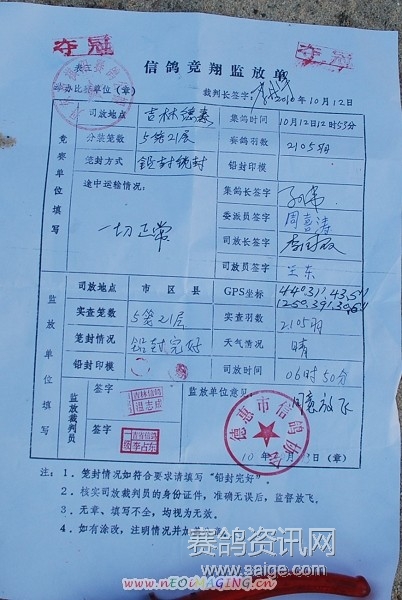 夺冠
夺冠
信鸽竞翔监放单
举办比赛单位（章）
裁判长签字：
2010年10月12日
竞赛单位填写
司放地点 吉林德惠 集鸽时间 10月12日12时53分
分装笼数 5第21层 参鸽羽数 2105羽
笼封方式 铅封统封 铅封印模
途中运输情况：
一切正常
集鸽长签字
委派员签字 周喜涛
司放长签字
司放员签字 兰东
监放单位填写
司放地点 市 区 县 GPS坐标
实查笼数 5第21层 实查羽数 2105羽
笼封情况 铅封完好 天气情况 晴
铅封印模 司放时间 06时50分
监放裁判员
签字
吉林信鸽
签字
吉省信鸽
李占东
监放单位意见：
同意放飞
德惠市信鸽协会
（章）
注：1．笼封情况如符合要求请填写“铅封完好”。
2．核实司放裁判员的身份证件，准确无误后，监督放飞。
3．无章、填写不全，均视为无效。
4．如有涂改，注明情况并加
赛鸽资讯网
www.saige.com
www.nEOiMAGING.cn